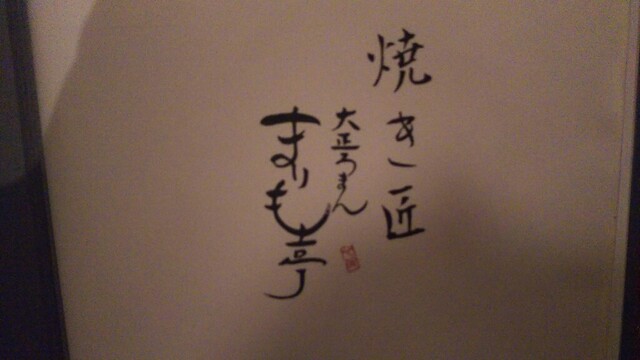 焼き匠
大正ろまん
まりも亭